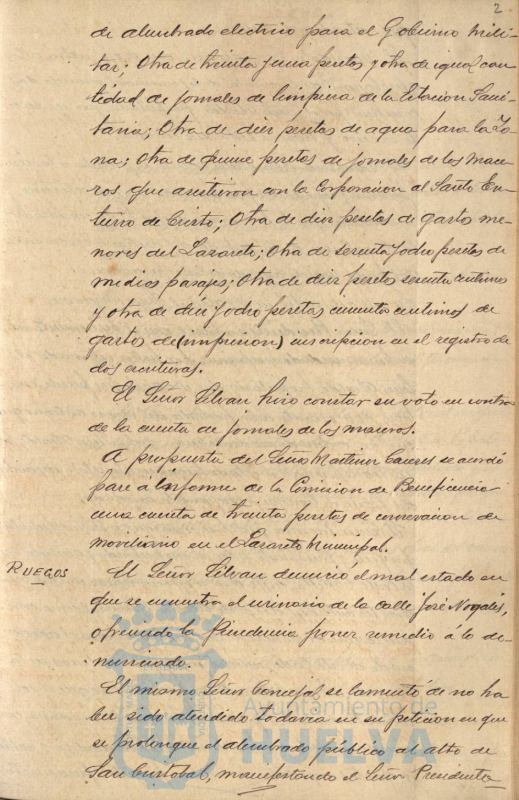 2
de alumbrado electrico para el Gobierno Mili-
tar; Otra de treinta y una pesetas y otra de igual can-
tidad de jornales de limpieza de la Estacion Sani-
taria; Otra de diez pesetas de agua para la
na; Otra de quince pesetas de jornales de los Mace-
ros que asistieron con la Corporacion al Santo En-
tierro de Cristo; Otra de diez pesetas de gastos me-
nores del Lazareto; Otra de sesenta y ocho pesetas de
medios pasajes; Otra de diez pesetas sesenta centimos
y otra de diez y ocho pesetas cincuenta centimos de
gastos de (impresion) inscripcion en el registro de
dos escrituras.
El Señor Silvan hizo constar su voto en contra
de la cuenta de jornales de los maceros.
A propuesta del Señor Martinez Caceres se acordó
pase á Informe de la Comision de Beneficencia
una cuenta de treinta pesetas de conservacion de
moviliario en el Lazareto Municipal.
RUEGOS
El Señor Silvan denunció el mal estado en
que se encuentra el urinario de la calle José Nogales,
ofreciendo la Presidencia poner remedio á lo de-
nunciado.
El mismo Señor Concejal se lamentó de no ha
ber sido atendido todavia en su peticion en que
se prolongue el alumbrado público al alto de
San Cristobal, manifestando el Señor Presidente
Ayuntamiento de
HUELVA